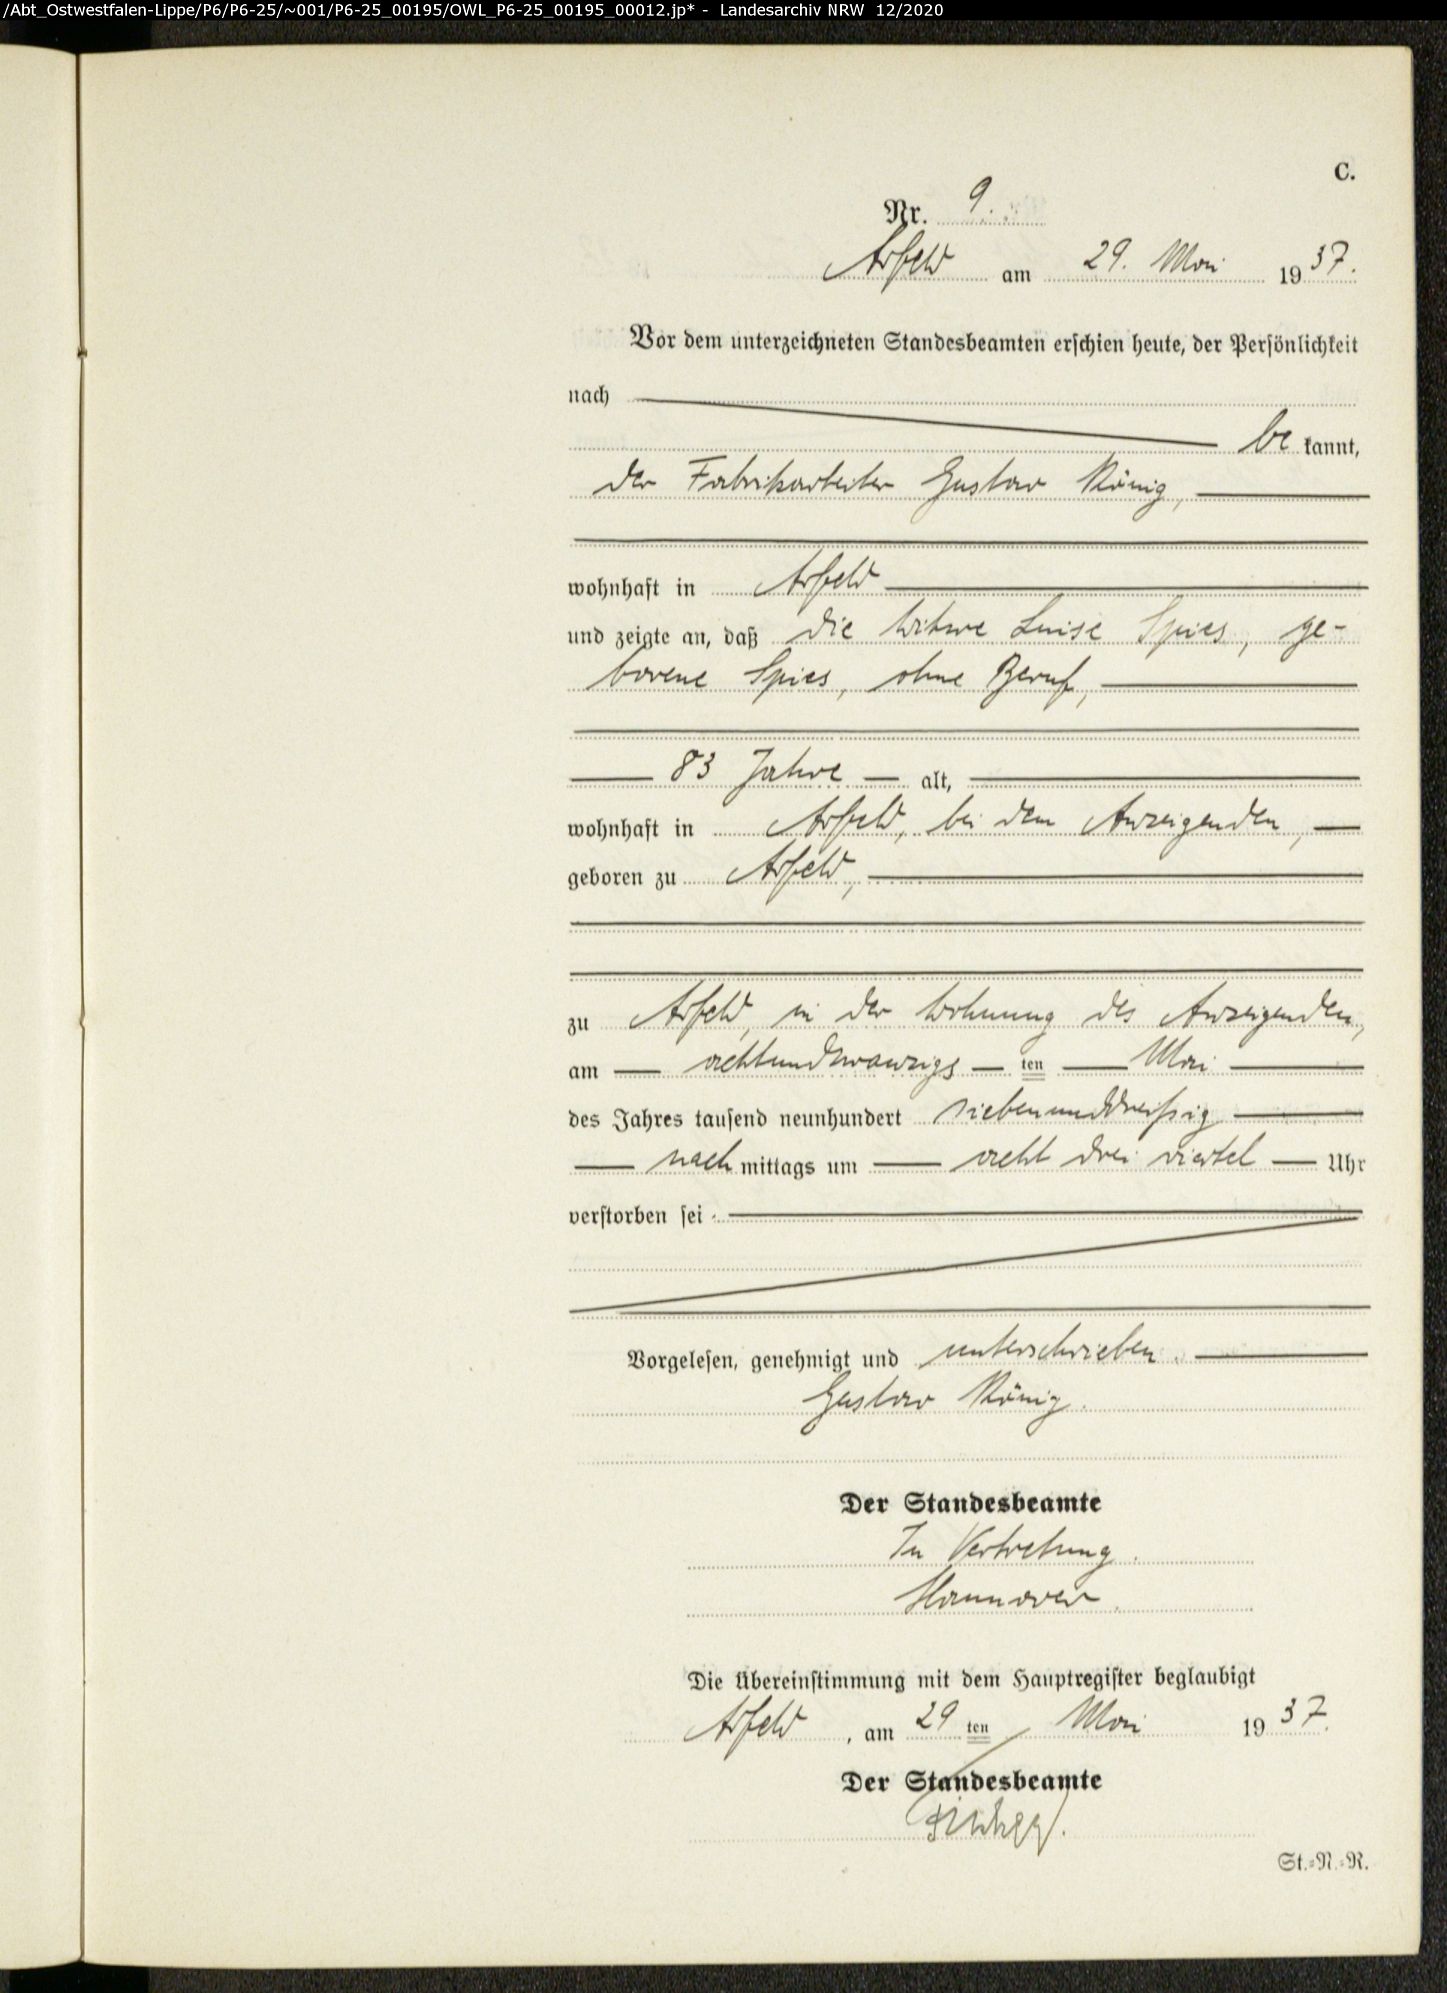 /Abt_Ostwestfalen-Lippe/P6/P6-25/~001/P6-25_00195/OWL_P6-25_00195_00012.jp* - Landesarchiv NRW 12/2020
C.
Nr. 9.
Arfeld am 29. Mai 1937.
Vor dem unterzeichneten Standesbeamten erschien heute, der Persönlichkeit
nach
bekannt,
der Fabrikarbeiter Gustav König,
wohnhaft in Arfeld
und zeigte an, daß die Witwe Luise Spies, ge-
borene Spies, ohne Beruf,
83 Jahre alt,
wohnhaft in Arfeld, bei dem Anzeigenden,
geboren zu Arfeld,
zu Arfeld, in der Wohnung des Anzeigenden,
am achtundzwanzigsten Mai
des Jahres tausend neunhundert siebenunddreißig
nachmittags um acht drei viertel Uhr
verstorben sei.
Vorgelesen, genehmigt und unterschrieben.
Gustav König.
Der Standesbeamte
In Vertretung.
Hannover.
Die Übereinstimmung mit dem Hauptregister beglaubigt
Arfeld, am 29ten Mai 1937.
Der Standesbeamte
St.=N.=R.